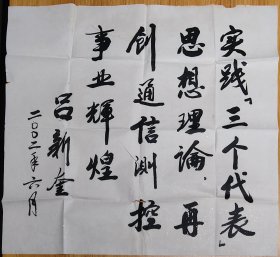 实践「三个代表」
思想理論，再
创通信测控
事业輝煌
吕新奎
二〇〇二年六月